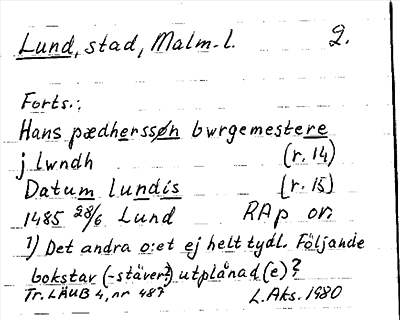 Lund, stad, Malm-l. 2.
Forts.:
Hans pædherssøn bwrgemestere
j lwndh (r. 14)
Datum lundis (r. 15)
1485 28/6 Lund RAp or.
1) Det andra o:et ej helt tydl. Följande
bokstav (-stäver?) utplånad(e)?
Tr. LÄUB 4, nr 487 L. Aks. 1980